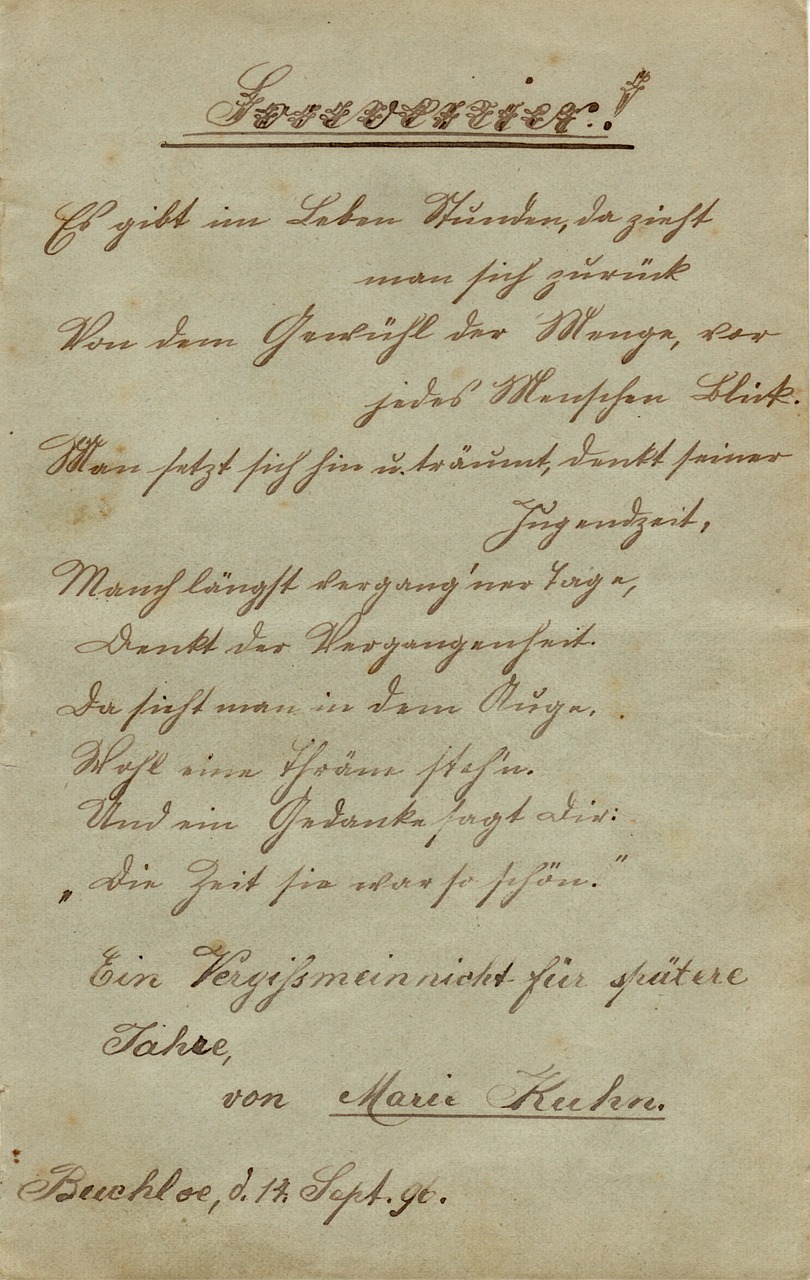 Souvenier!
Es gibt im Leben Stunden, da zieht
man sich zurück
Von dem Gewühl der Menge, vor
jedes Menschen Blick.
Man setzt sich hin u. träumt, denkt seiner
Jugendzeit,
Manch längst vergang'ner Tage,
Denkt der Vergangenheit.
Da sieht man in dem Auge,
Wohl eine Thräne steh'n.
Und ein Gedanke sagt Dir:
„Die Zeit sie war so schön.”
Ein Vergißmeinnicht für spätere
Jahre,
von Marie Kuhn.
Buchloe, d. 14. Sept. 96.